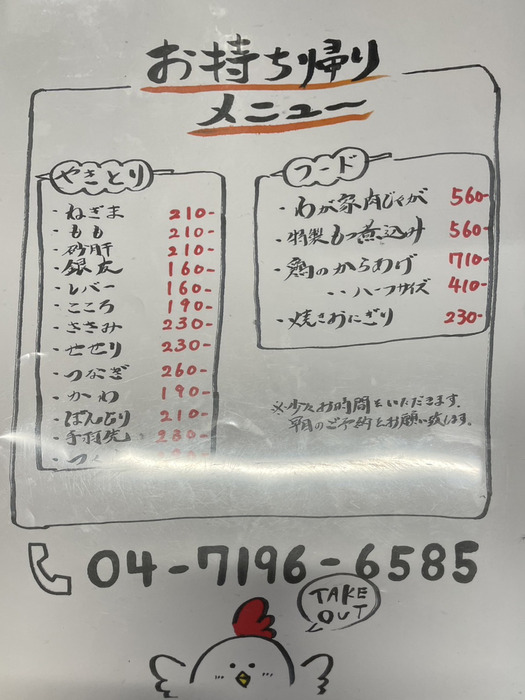 お持ち帰り
メニュー
やきとり
・ねぎま 210-
・もも 210-
・砂肝 210-
・銀皮 160-
・レバー 160-
・こころ 190-
・ささみ 230-
・せせり 230-
・つなぎ 260-
・かわ 190-
・ぼんじり 210-
・手羽先 230-
・つく
フード
・わが家肉じゃが 560-
・特製もつ煮込み 560-
・鶏のからあげ 710-
・・ハーフサイズ 410-
・焼きおにぎり 230-
※少々お時間をいただきます。
早目のご予約をお願い致します。
04-7196-6585
TAKE
OUT